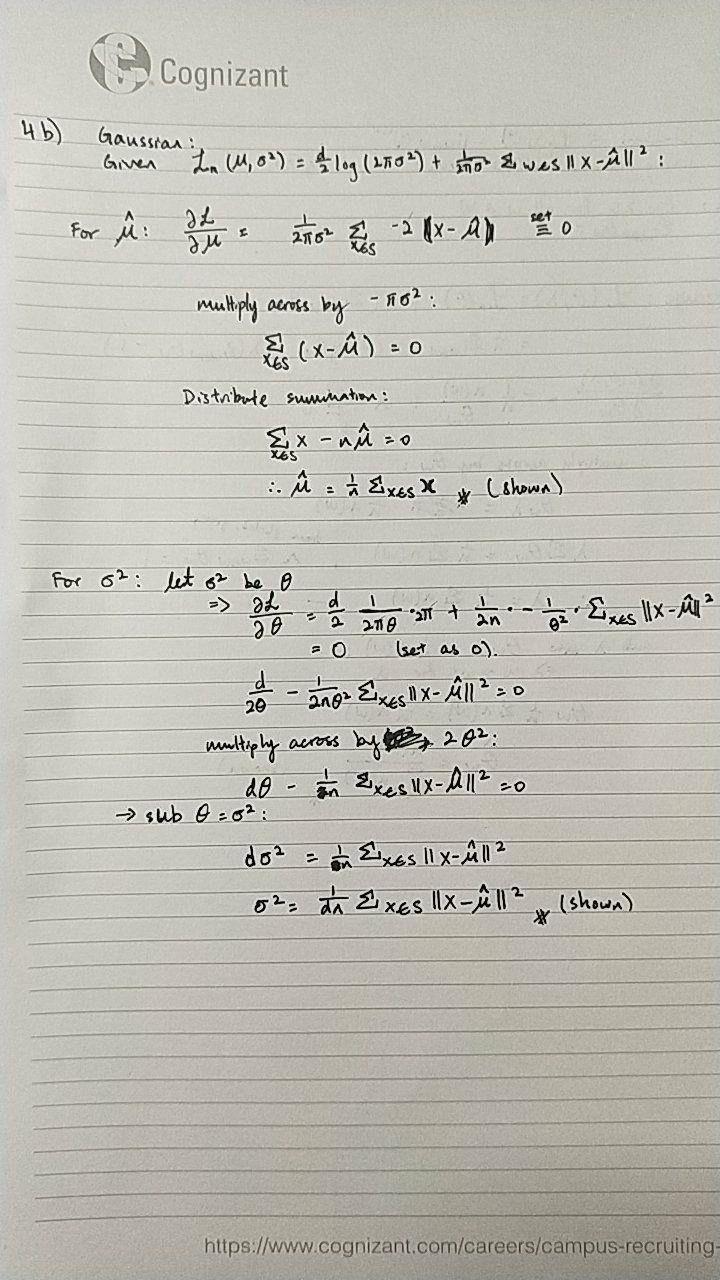 Cognizant
4b) Gaussian:
Given ℒₙ (μ, σ²) = d/2 log (2πσ²) + 1/2πσ² Σ wes ||x - μ̂||² :
For μ̂: ∂ℒ/∂μ = 1/2πσ² Σ_{x∈S} -2 (x - μ̂) set ≡ 0
multiply across by - πσ² :
Σ_{x∈S} (x - μ̂) = 0
Distribute summation:
Σ_{x∈S} x - nμ̂ = 0
∴ μ̂ = 1/n Σ_{x∈S} x (shown)
For σ²: let σ² be θ
=> ∂ℒ/∂θ = d/2 · 1/2πθ · 2π + 1/2n · - 1/θ² · Σ_{x∈S} ||x - μ̂||²
= 0 (set as 0).
d/2θ - 1/2nθ² Σ_{x∈S} ||x - μ̂||² = 0
multiply across by 2θ²:
dθ - 1/n Σ_{x∈S} ||x - μ̂||² = 0
→ sub θ = σ²:
dσ² = 1/n Σ_{x∈S} ||x - μ̂||²
σ² = 1/dn Σ_{x∈S} ||x - μ̂||² (shown)
https://www.cognizant.com/careers/campus-recruiting-